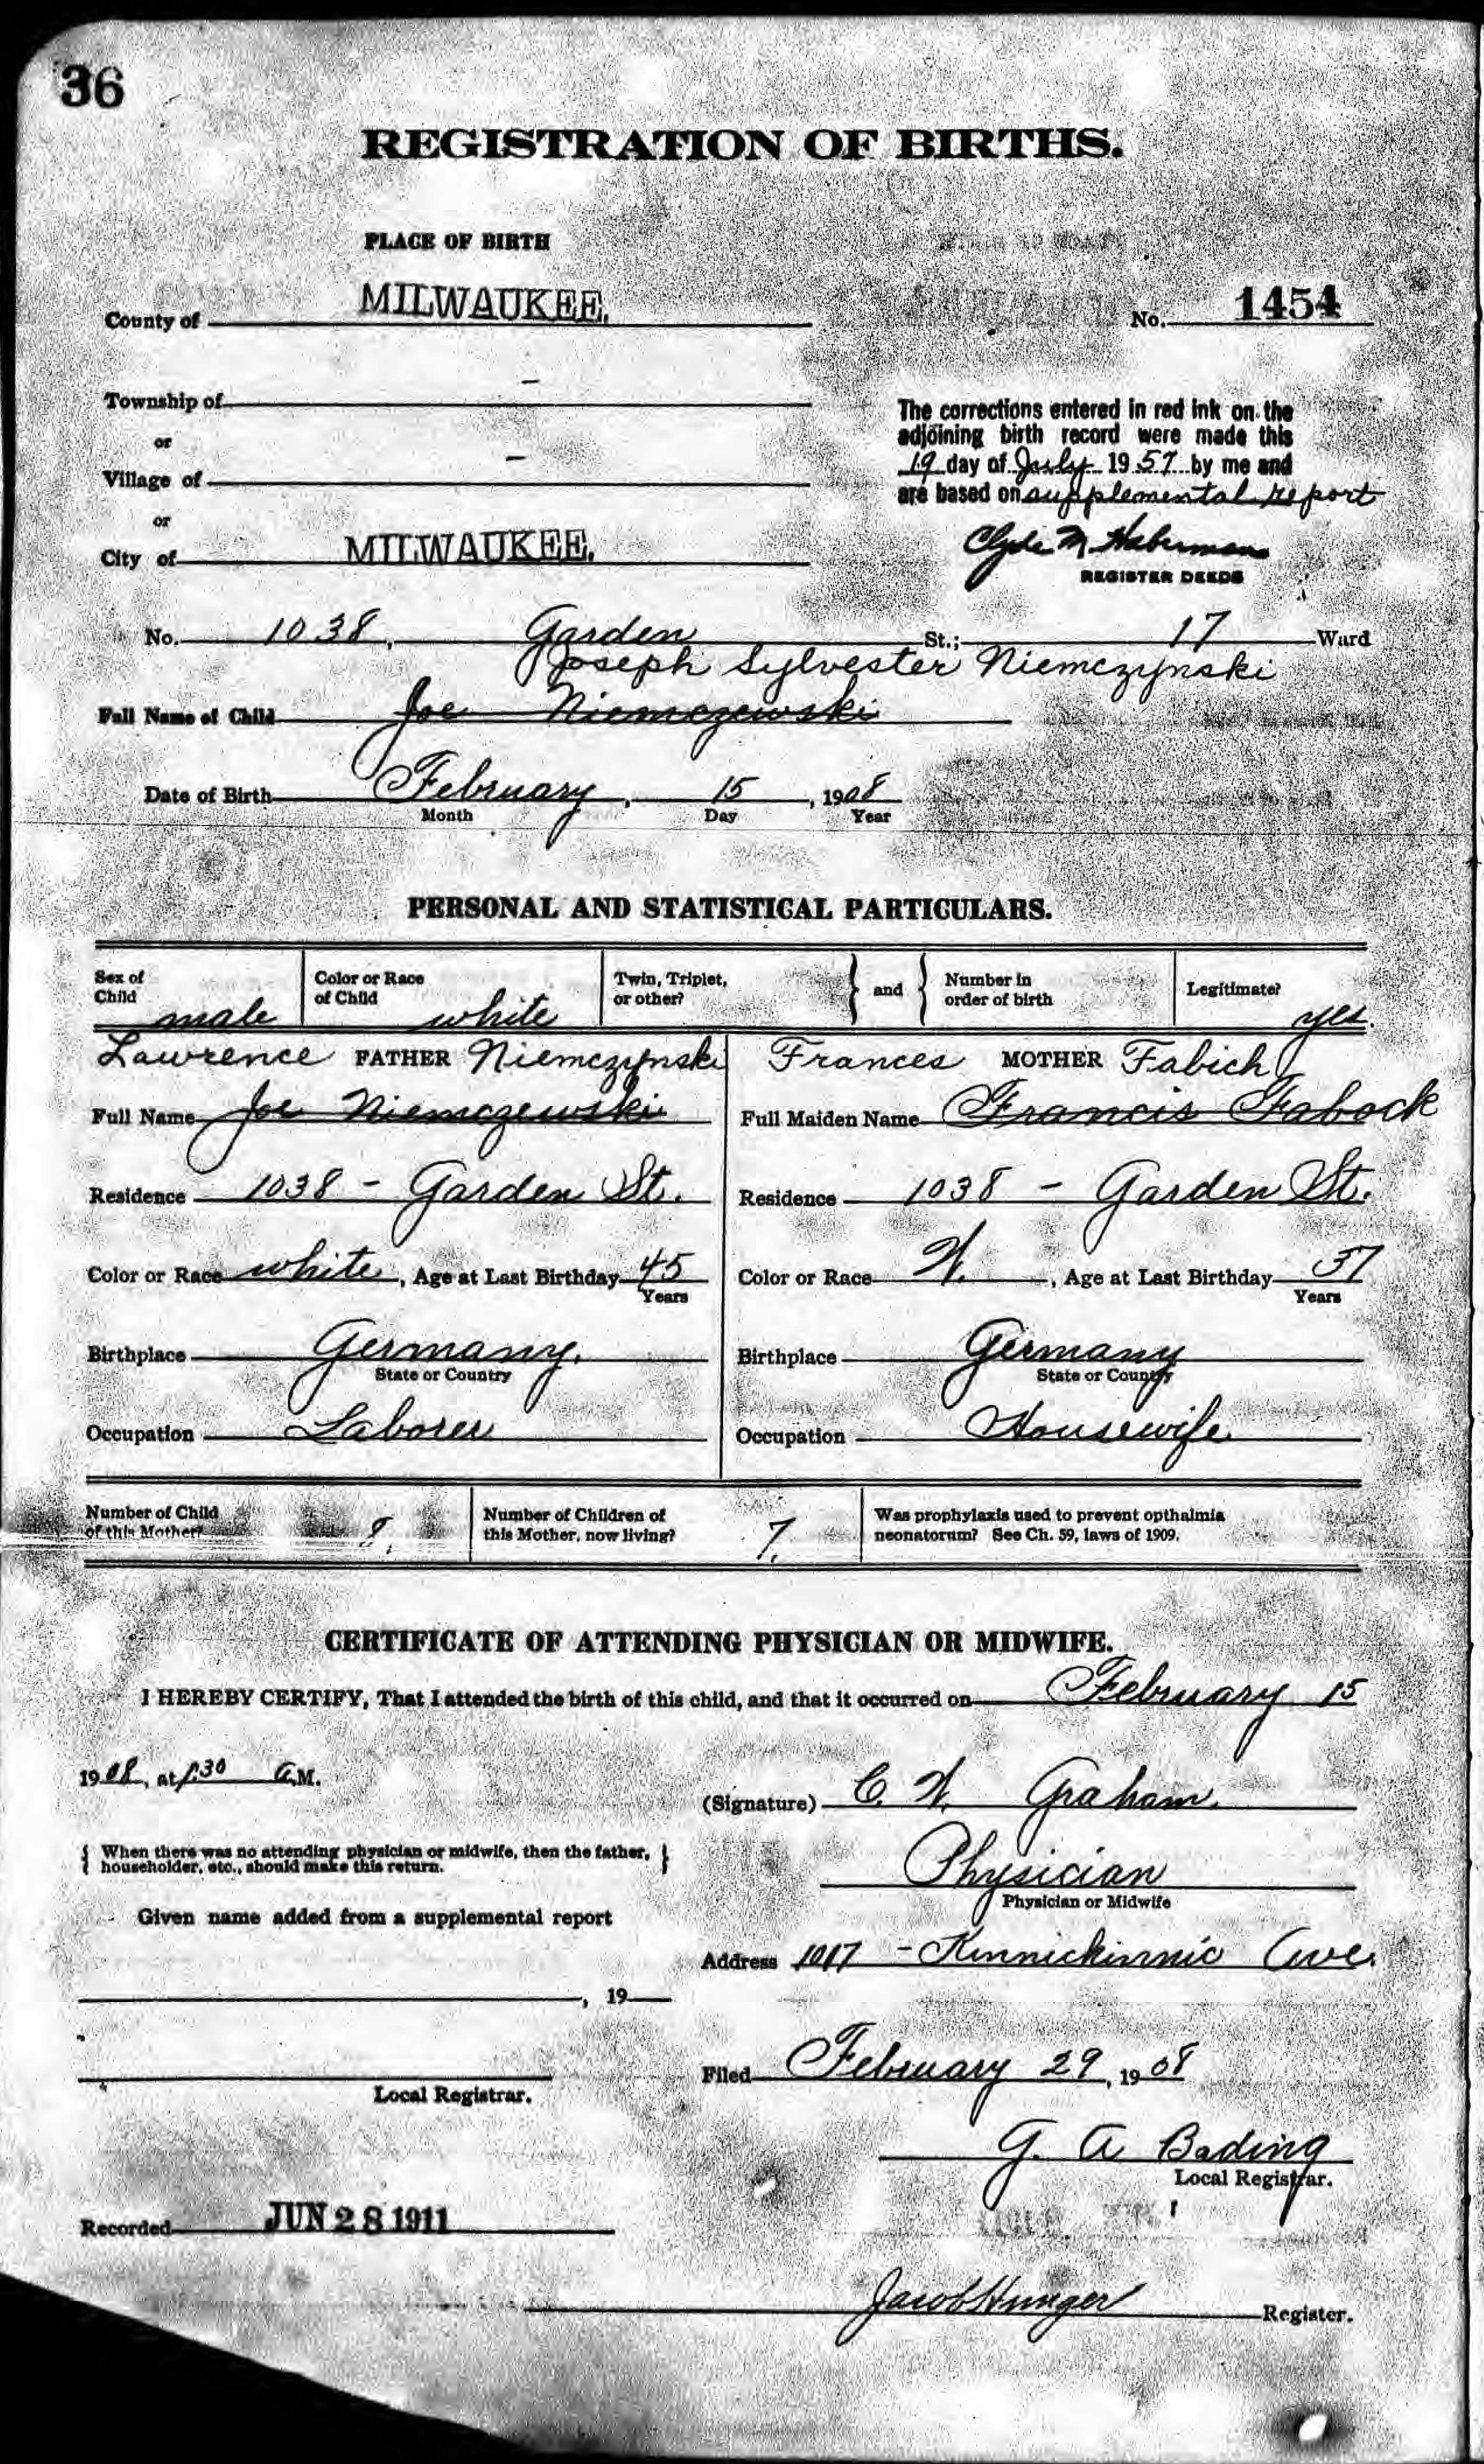 36
REGISTRATION OF BIRTHS.
PLACE OF BIRTH
County of MILWAUKEE.
No. 1454
Township of —
or
Village of —
or
City of MILWAUKEE.
The corrections entered in red ink on the
adjoining birth record were made this
19 day of July 1957 by me and
are based on supplemental report
Clyde M. Habermann
REGISTER DEEDS
No. 1038, Garden St.; 17 Ward
Joseph Sylvester Niemczynski
Full Name of Child Joe Niemczewski
Date of Birth February, 15, 1908
Month Day Year
PERSONAL AND STATISTICAL PARTICULARS.
Sex of Child male
Color or Race of Child white
Twin, Triplet, or other?
and
Number in order of birth
Legitimate? yes.
Lawrence FATHER Niemczynski
Full Name Joe Niemczewski
Residence 1038 - Garden St.
Color or Race white, Age at Last Birthday 45
Years
Birthplace Germany.
State or Country
Occupation Laborer
Frances MOTHER Fabich
Full Maiden Name Francis Fabock
Residence 1038 - Garden St.
Color or Race W., Age at Last Birthday 37
Years
Birthplace Germany
State or Country
Occupation Housewife
Number of Child
of this Mother? 8.
Number of Children of
this Mother, now living? 7.
Was prophylaxis used to prevent opthalmia
neonatorum? See Ch. 59, laws of 1909.
CERTIFICATE OF ATTENDING PHYSICIAN OR MIDWIFE.
I HEREBY CERTIFY, That I attended the birth of this child, and that it occurred on February 15
1908, at 1:30 A.M.
(Signature) C. W. Graham.
{ When there was no attending physician or midwife, then the father,
householder, etc., should make this return. }
Physician
Physician or Midwife
Given name added from a supplemental report
Address 1017 - Kinnickinnic Ave.
, 19
Local Registrar.
Filed February 29, 1908
G. A Bading
Local Registrar.
Recorded JUN 28 1911
Jacob Hunger Register.